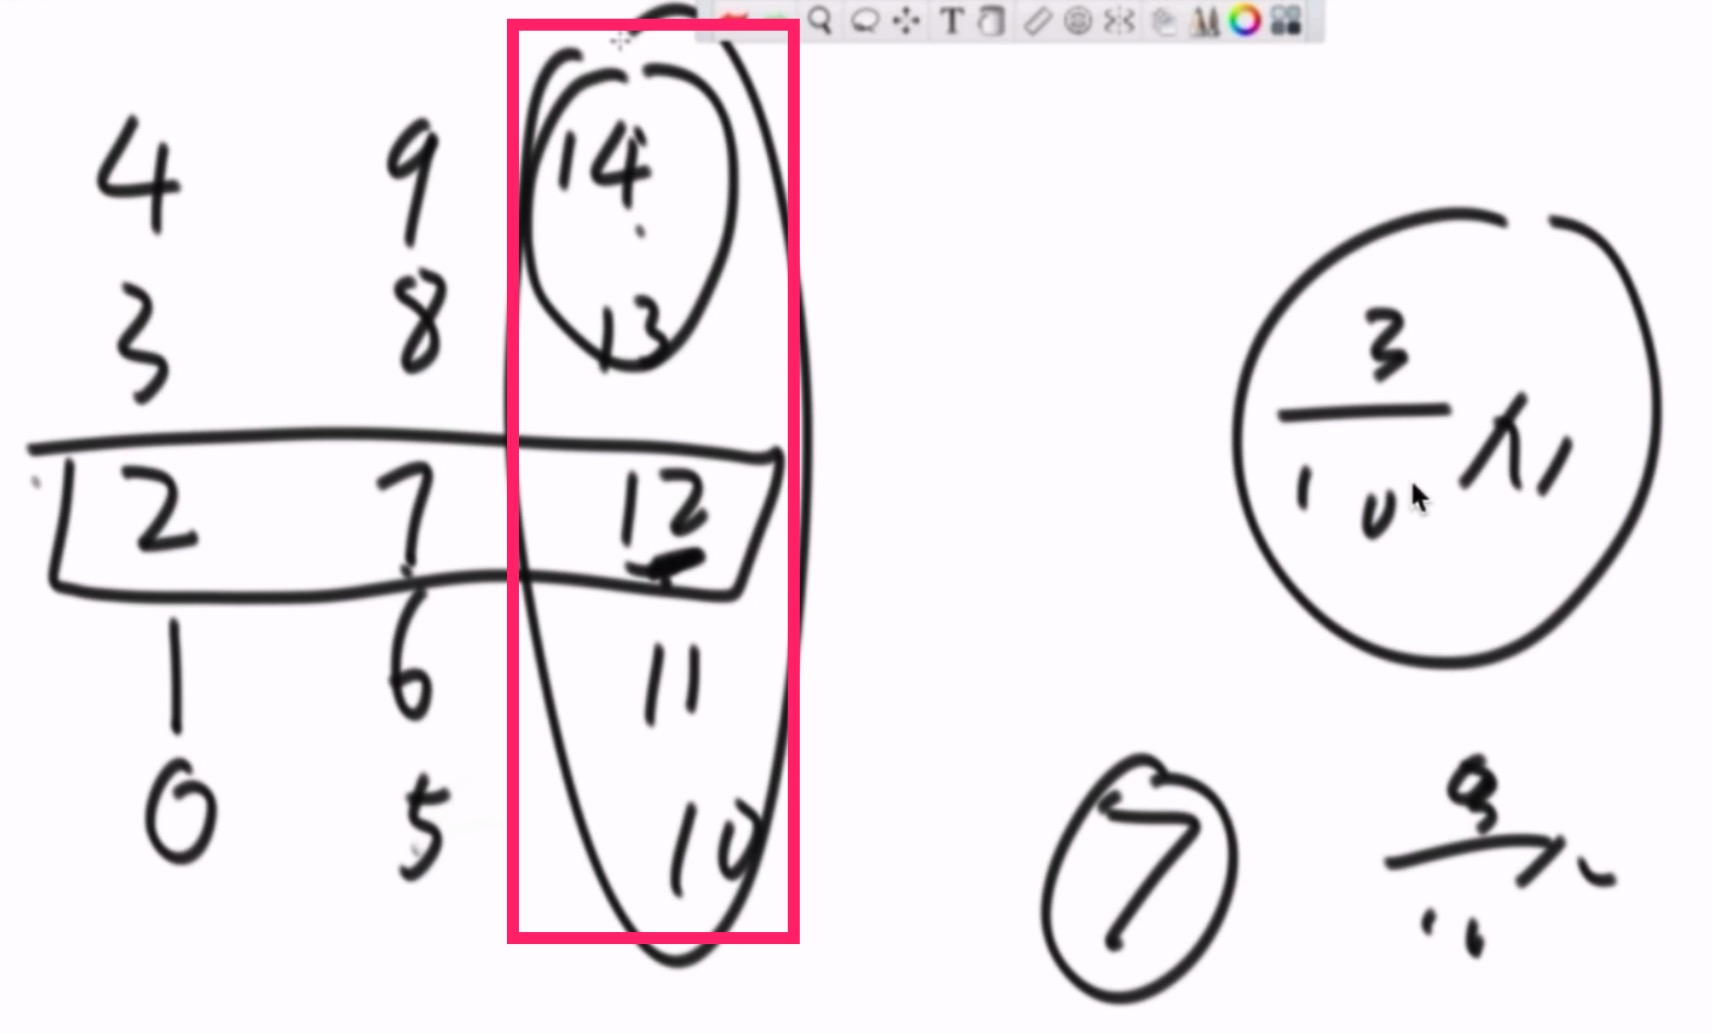 4 9 14
3 8 13
2 7 12
1 6 11
0 5 10
3
10
7
T